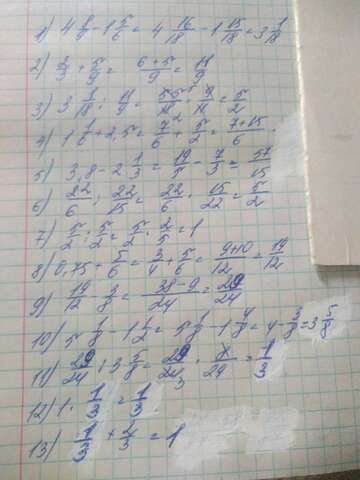 1) 4 8/9 - 1 5/6 = 4 16/18 - 1 15/18 = 3 1/18
2) 2/3 + 5/9 = (6+5)/9 = 11/9
3) 3 1/18 : 11/9 = 55/18 · 9/11 = 5/2
4) 1 1/6 + 2,5 = 7/6 + 5/2 = (7+15)/6
5) 3,8 - 2 1/3 = 19/5 - 7/3 = 57/15
6) 22/6 : 22/15 = 22/6 · 15/22 = 5/2
7) 5/2 : 5/2 = 5/2 · 2/5 = 1
8) 0,75 + 5/6 = 3/4 + 5/6 = (9+10)/12 = 19/12
9) 19/12 - 3/8 = (38-9)/24 = 29/24
10) 5 1/8 - 1 1/2 = 5 1/8 - 1 4/8 = 4 - 3/8 = 3 5/8
11) 29/24 : 3 5/8 = 29/24 · 8/29 = 1/3
12) 1 · 1/3 = 1/3
13) 1/3 + 2/3 = 1